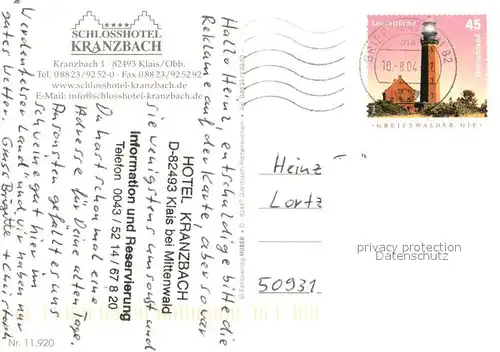 SCHLOSSHOTEL
KRANZBACH
Kranzbach 1 · 82493 Klais/Obb.
Tel. 0 88 23/92 52-0 · Fax 0 88 23/92 52 92
www.schlosshotel-kranzbach.de
E-Mail: info@schlosshotel-kranzbach.de
Hallo Heinz, entschuldige bitte die
Reklame auf der Karte, aber so war
sie wenigstens umsonst und
Du hast schon mal eine
Adresse für Deine alten Tage.
Ansonsten gefällt es uns
sehr gut hier im
"Werdenfelser Land" und wir haben nur
gutes Wetter. Gruss Brigitte + Christoph
HOTEL KRANZBACH
D-82493 Klais bei Mittenwald
Information und Reservierung
Telefon 0043/52 14/67 8 20
Nr. 11.920
Leuchttürme
45
Deutschland
GREIFSWALDER OIE
82
10.-8.04
Heinz
Lortz
50931
privacy protection
Datenschutz